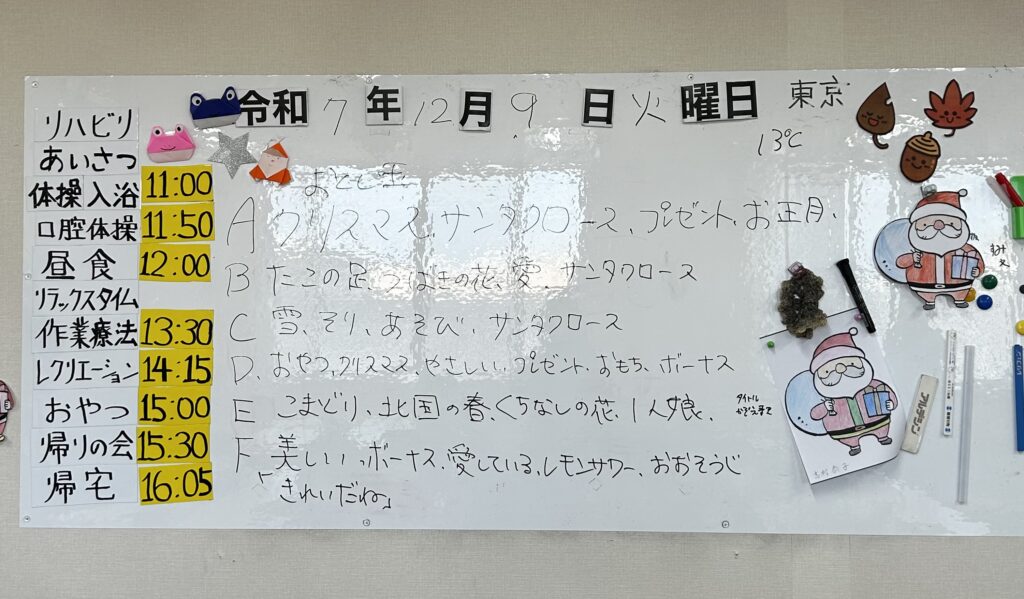 令和 7 年 12 月 9 日 火 曜日 東京
13℃
リハビリ
あいさつ
体操 入浴 11:00
口腔体操 11:50
昼食 12:00
リラックスタイム
作業療法 13:30
レクリエーション 14:15
おやつ 15:00
帰りの会 15:30
帰宅 16:05
おとし玉
A クリスマス、サンタクロース、プレゼント、お正月、
B たこの足、つばきの花、愛、サンタクロース
C 雪、そり、あそび、サンタクロース
D、おやつ、クリスマス、やさしい、プレゼント、おもち、ボーナス
E こまどり、北国の春、くちなしの花、1人娘、
タイトル
F 美しい、ボーナス、愛している、レモンサワー、おおそうじ
「きれいだね」